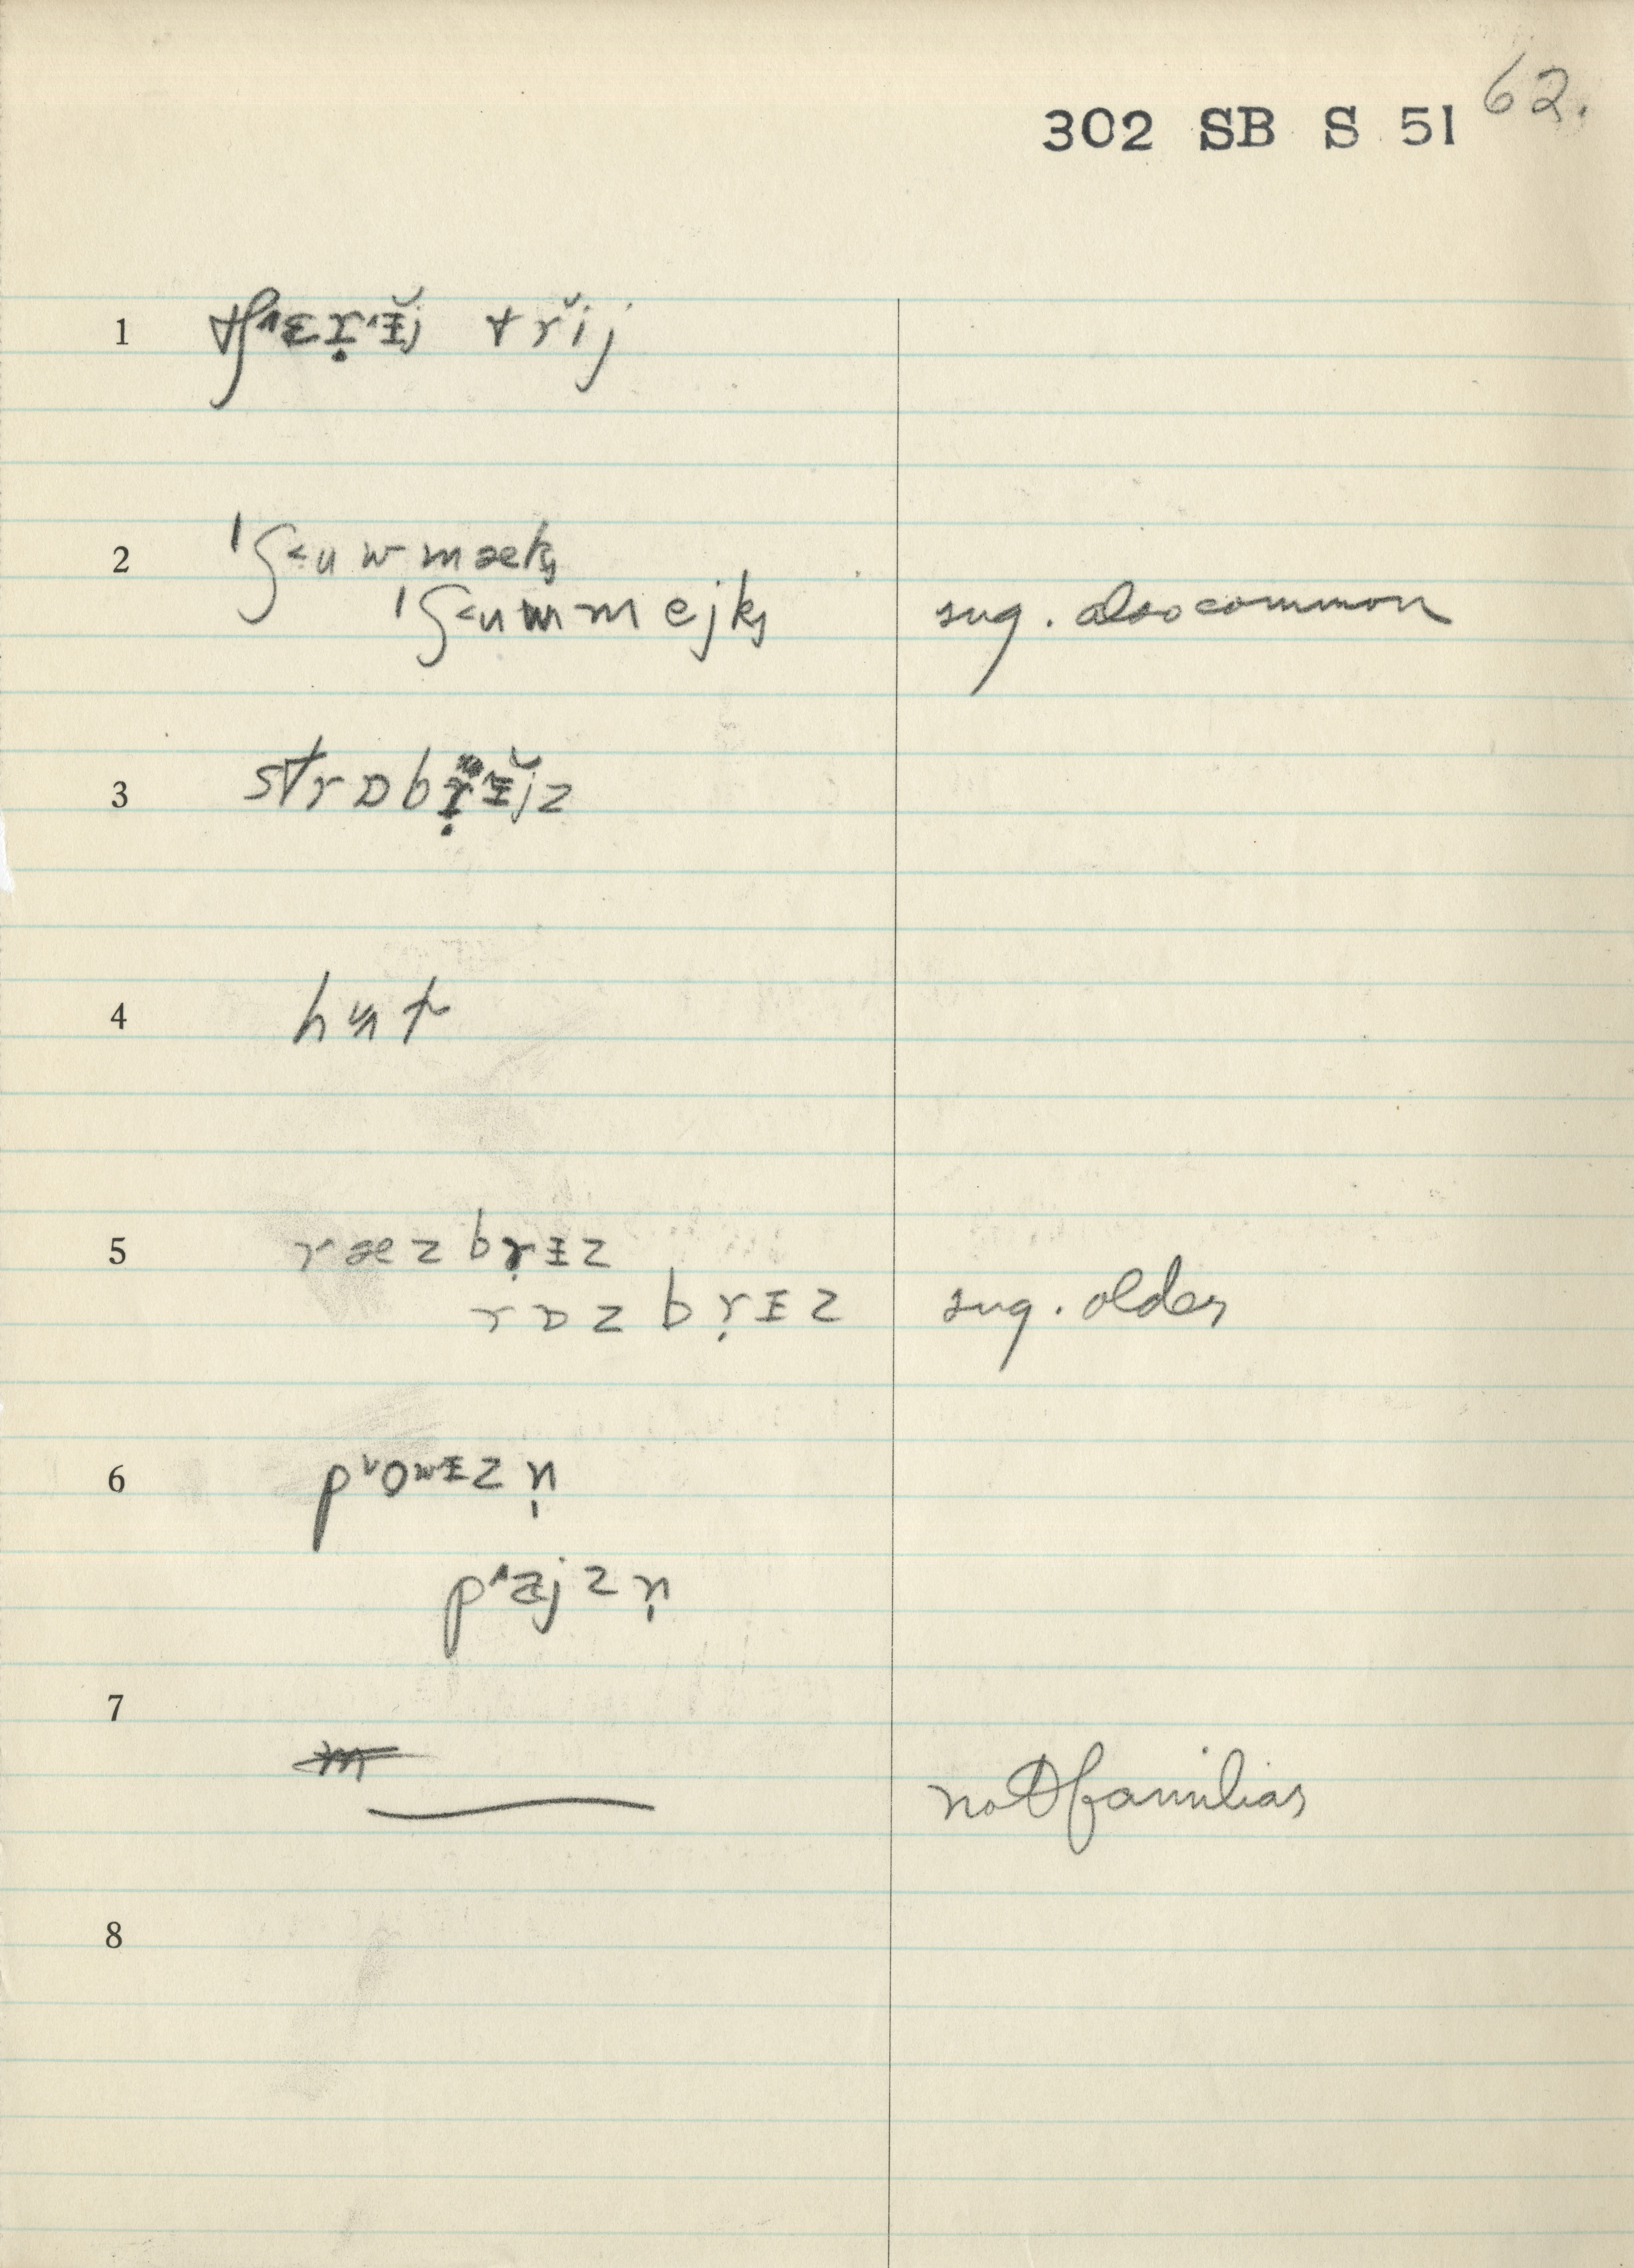 62.
302 SB S 51
1 tʃ˄ɛṛ˄ɪ̵̆j tr̆ij
2 ˈʃ˂uwmæk̡
ˈʃ˂uwmejk̡ sug. also common
3 strɒbṛ˄ɪ̵̆jz
4 hʌt
5 ræzbṛɪ̵z
rɒzbṛɪz sug. older
6 p˅oʷɪ̵zn̩
p˄ɜjzn̩
7
not familiar
8